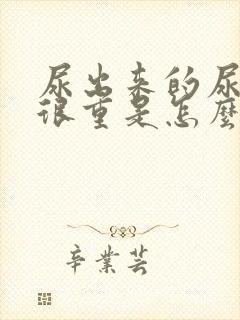 尿出来的尿
很重是怎麼
辛業芸